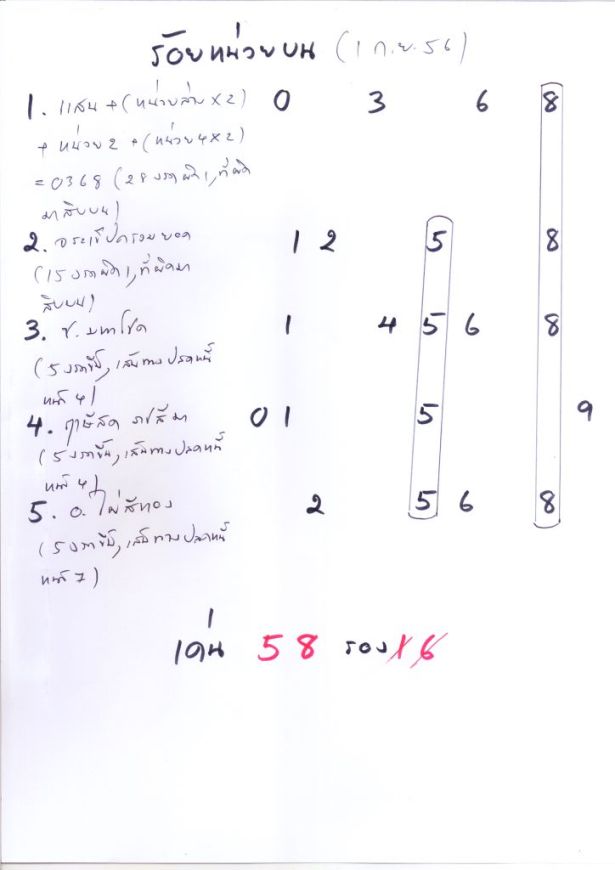 ร้อยหน่วยบน (1 ก.ย. 56)
1. แสน + (หน่วยล่าง x 2) 0 3 6 8
+ หน่วย 2 + (หน่วย 4 x 2)
= 0368 (28 งวดผิด 1, ที่ผิด
มาสิบบน)
2. จระเข้ปดรวมยอด 1 2 5 8
(15 งวดผิด 1, ที่ผิดมา
สิบบน)
3. ช. มหาโชค 1 4 5 6 8
(5 งวด, เส้นทางปลดหนี้
หน้า 4)
4. ฤาษีสด ราศีมา 0 1 5 9
(5 งวดขึ้น, เส้นทางปลดหนี้
หน้า 4)
5. อ. ไผ่สีทอง 2 5 6 8
(5 งวด, เส้นทางปลดหนี้
หน้า 7)
เด่น 5 8 รอง 1 6